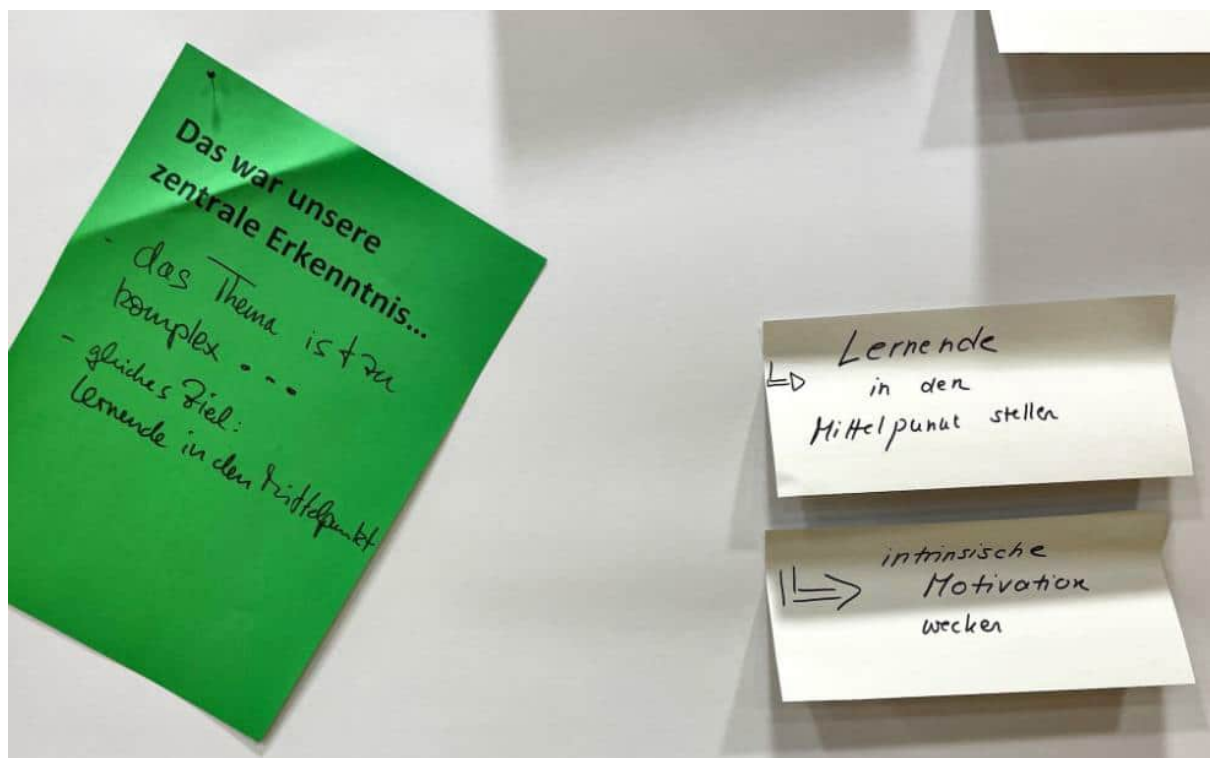 Das war unsere
zentrale Erkenntnis...
- das Thema ist zu
komplex ...
- gleiches Ziel:
Lernende in den Mittelpunkt
Lernende
in den
Mittelpunkt stellen
intrinsische
Motivation
wecken